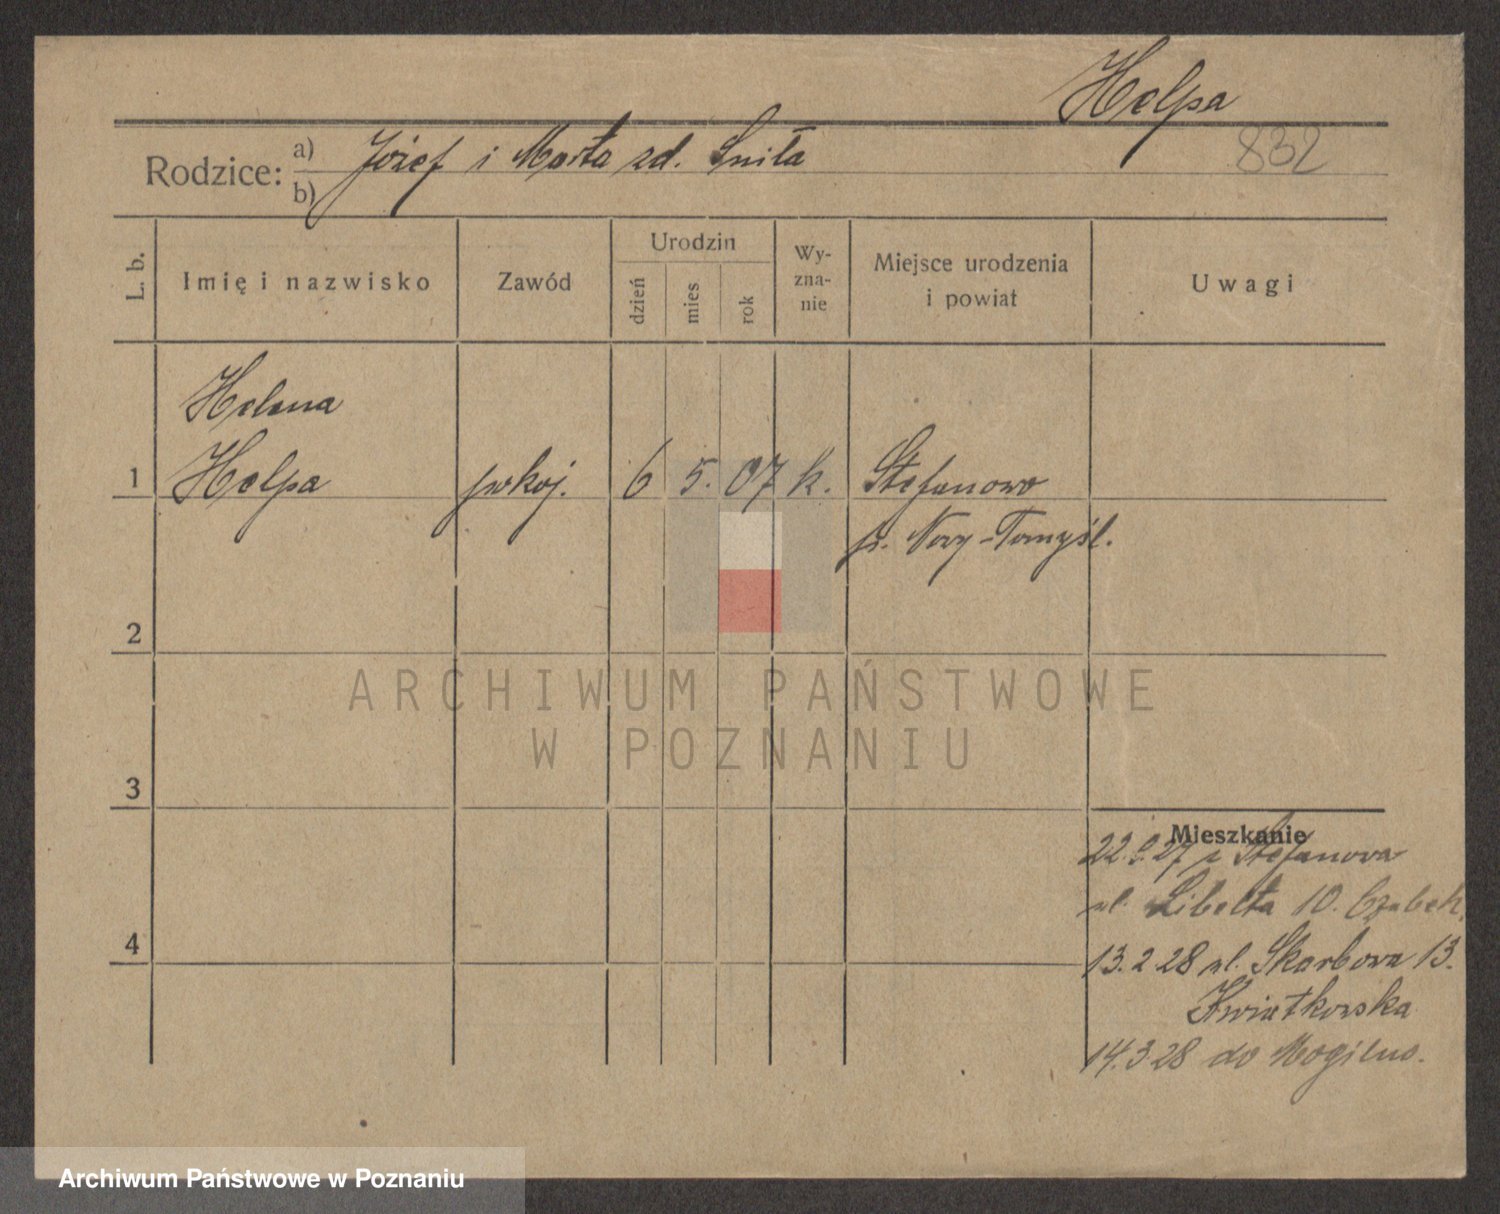 Helpa
832
Rodzice: a) Józef i Marta zd. Sniła
b)
L. b. Imię i nazwisko Zawód Urodzin dzień mies rok Wy-zna-nie Miejsce urodzenia i powiat Uwagi
Helena
1 Helpa pokoj. 6 5. 07 k. Stefanowo
p. Nowy-Tomyśl.
2
ARCHIWUM PAŃSTWOWE
W POZNANIU
3
Mieszkanie
22. 27 z Stefanowa
ul. Libelta 10.
4
13.2.28 ul. Skarbowa 13.
Kwiatkowska
14.3.28 do Mogilno.
Archiwum Państwowe w Poznaniu